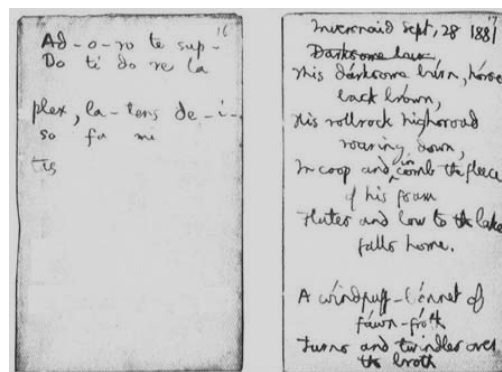 16
Ad-o-ro te sup-
Do ti do re la
plex, la-tens de-i-
so fa mi
tis
Inversnaid Sept. 28 1881
Darksome burn
This dárksome búrn, hórse
back brówn,
His rollrock highroad
roaring down,
In coop and in comb the fleece
of his foam
Flutes and low to the lake
falls home.
A wíndpuff-bónnet of
fáwn-fróth
Turns and twindles over
the broth